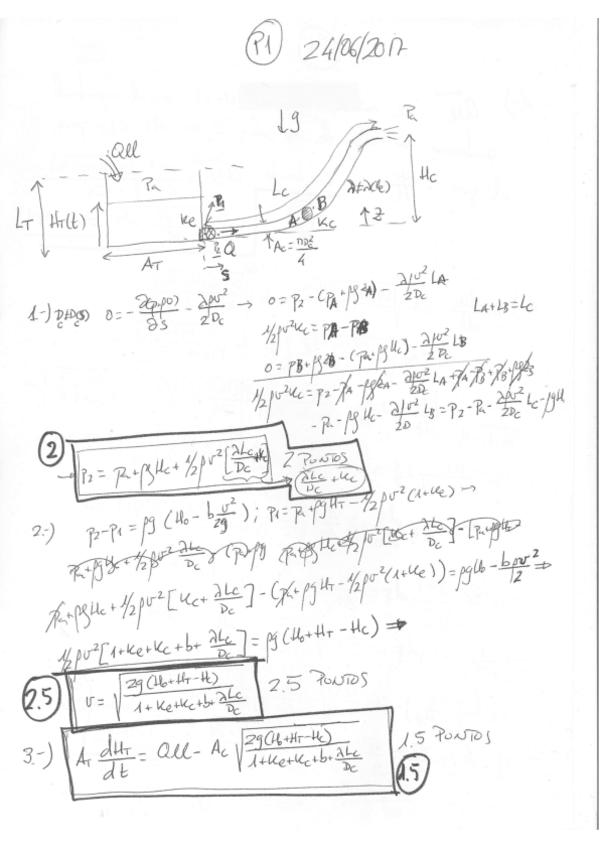 P1 24/06/2017
↓g
Pa
Qll
Pa
LT HT(t)
Ke P1
Lc
A B
Kc
λ=λ(ε)
Hc
↑ z
P2 Q
Ac = πDc²/4
AT
S
1.-) 0 = -∂(p+ρgz)/∂s - λρv²/2Dc → 0 = P2 - (PA + ρgzA) - λρv²/2Dc LA
LA + LB = Lc
1/2 ρv²Kc = PA - PB
0 = PB + ρgzB - (Pa + ρgHc) - λρv²/2Dc LB
1/2 ρv²Kc = P2 - PA - ρgzA - λρv²/2Dc LA + PA - PB + PB + ρgzB
- Pa - ρgHc - λρv²/2D LB = P2 - Pa - λρv²/2Dc Lc - ρgH
2
→ P2 = Pa + ρgHc + 1/2 ρv² [λLc/Dc + Kc]
2 PUNTOS
λLc/Dc + Kc
2.-) P2 - P1 = ρg (H0 - b v²/2g) ; P1 = Pa + ρgHT - 1/2 ρv² (1+Ke) →
Pa + ρgHc + 1/2 ρv² [Kc + λLc/Dc] - (Pa + ρgHT - 1/2 ρv² (1+Ke)) = ρgH0 - bρv²/2 ⇒
1/2 ρv² [1+Ke+Kc+b+ λLc/Dc] = ρg (H0+HT-Hc) ⇒
2.5
v = √(2g(H0+HT-H)/(1+Ke+Kc+b+λLc/Dc))
2.5 PUNTOS
3.-) AT dHT/dt = Qll - Ac √(2g(H0+HT-Hc)/(1+Ke+Kc+b+λLc/Dc))
1.5 PUNTOS
1.5